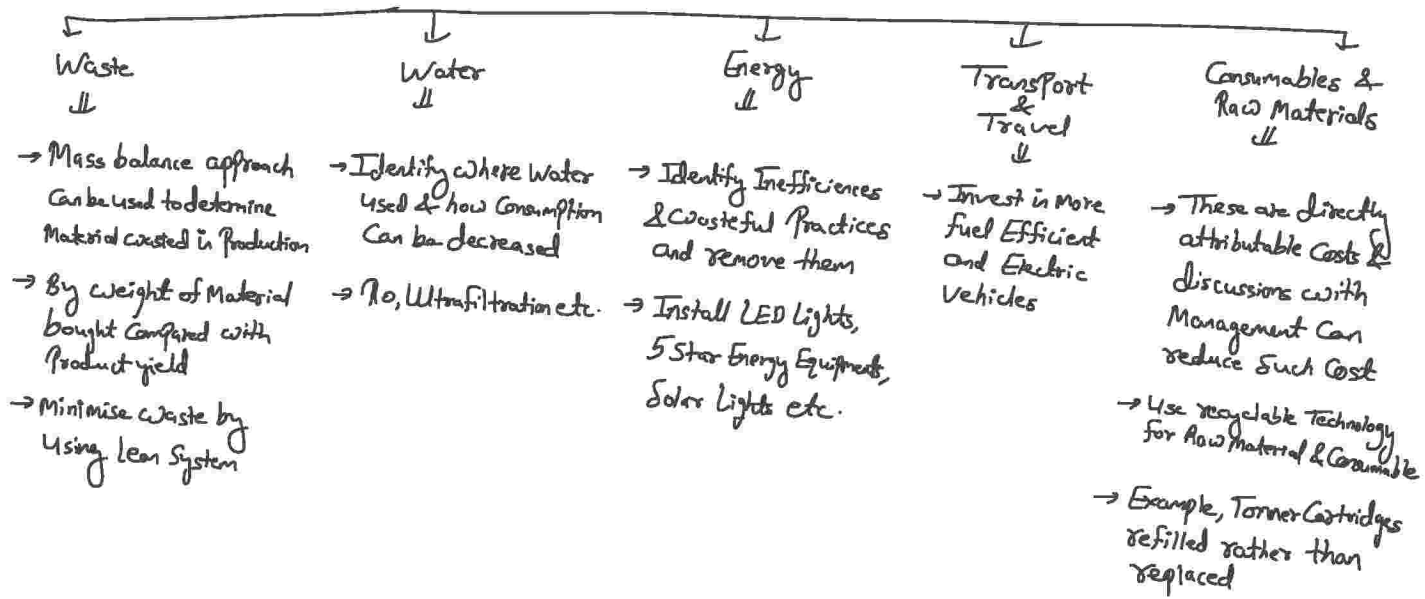 Waste
⇓
→ Mass balance approach
Can be used to determine
Material wasted in Production
→ By weight of Material
bought Compared with
Product yield
→ Minimise waste by
Using Lean System
Water
⇓
→ Identify where Water
used & how Consumption
Can be decreased
→ Ro, Ultrafiltration etc.
Energy
⇓
→ Identify Inefficiences
& wasteful Practices
and remove them
→ Install LED Lights,
5 Star Energy Equipments,
Solar Lights etc.
Transport
&
Travel
⇓
→ Invest in More
fuel Efficient
and Electric
Vehicles
Consumables &
Raw Materials
⇓
→ These are directly
attributable Costs &
discussions with
Management Can
reduce Such Cost
→ Use recyclable Technology
for Raw Material & Consumable
→ Example, Tonner Cartridges
refilled rather than
replaced